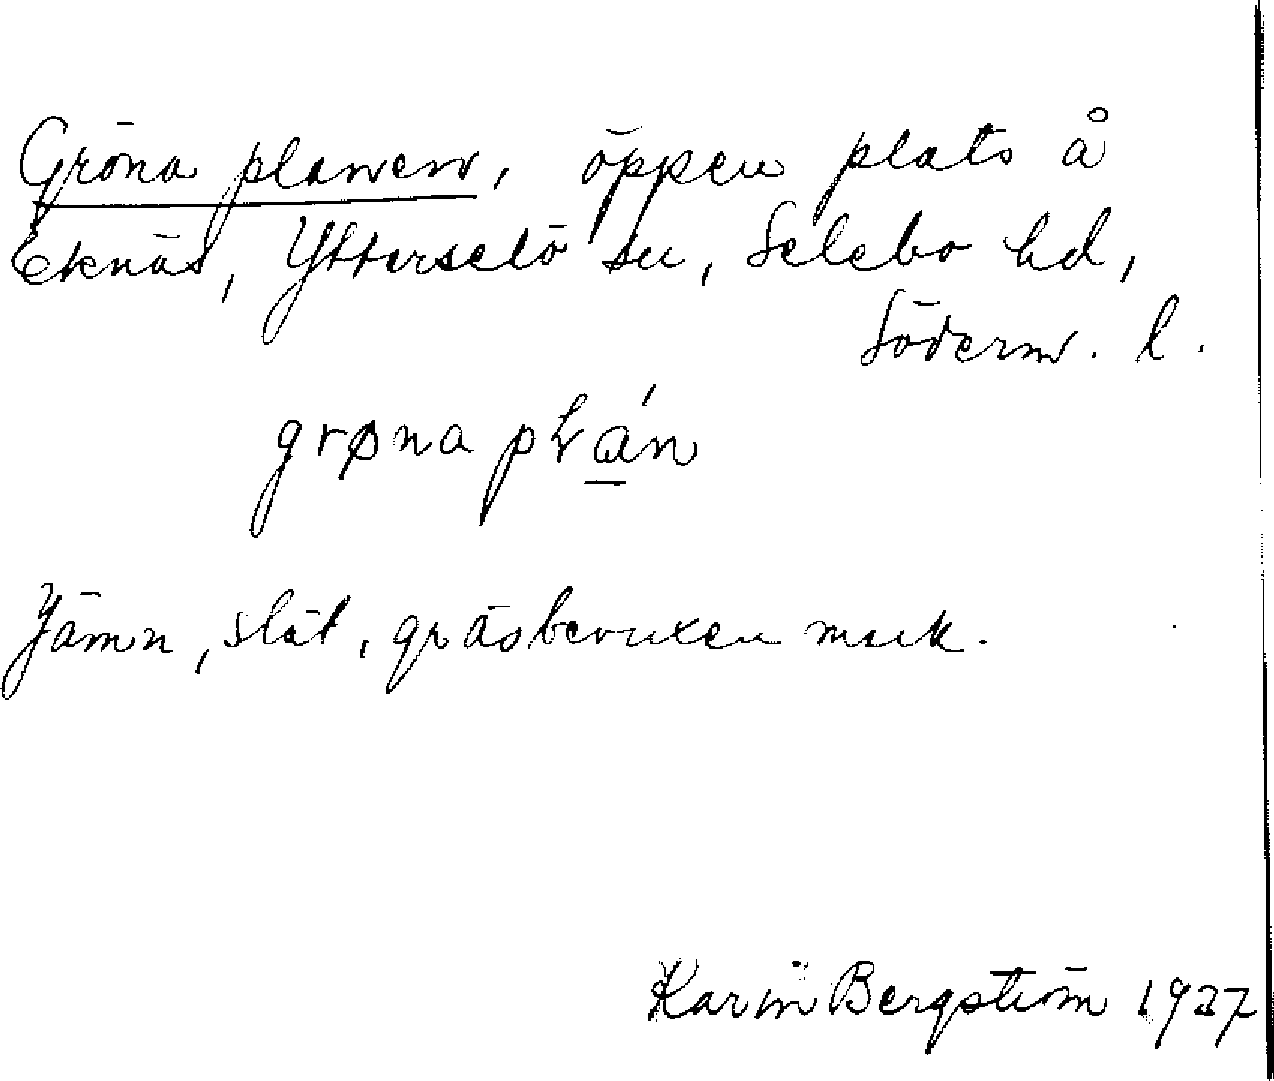 Gröna planen, öppen plats å
Eknäs, Ytterselö sn, Selebo hd,
Söderm. l.
grøna plán
Jämn, slät, gräsbevuxen mark.
Karin Bergström 1927